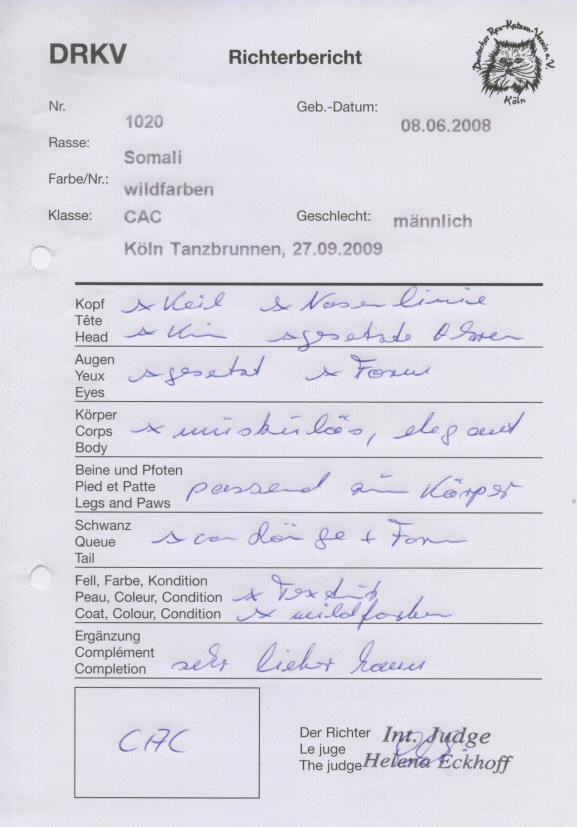 DRKV
Richterbericht
Deutscher Rex-Katzen-Verein e.V.
Köln
Nr.
1020
Geb.-Datum:
08.06.2008
Rasse:
Somali
Farbe/Nr.:
wildfarben
Klasse:
CAC
Geschlecht:
männlich
Köln Tanzbrunnen, 27.09.2009
Kopf
Tête
Head
Keil Nasenlinie
Kinn gesetzte Ohren
Augen
Yeux
Eyes
gesetzt Form
Körper
Corps
Body
muskulös, elegant
Beine und Pfoten
Pied et Patte
Legs and Paws
passend zum Körper
Schwanz
Queue
Tail
Länge + Form
Fell, Farbe, Kondition
Peau, Coleur, Condition
Coat, Colour, Condition
Textur
wildfarben
Ergänzung
Complément
Completion
sehr lieber
CAC
Der Richter
Le juge
The judge
Int. Judge
Helena Eckhoff